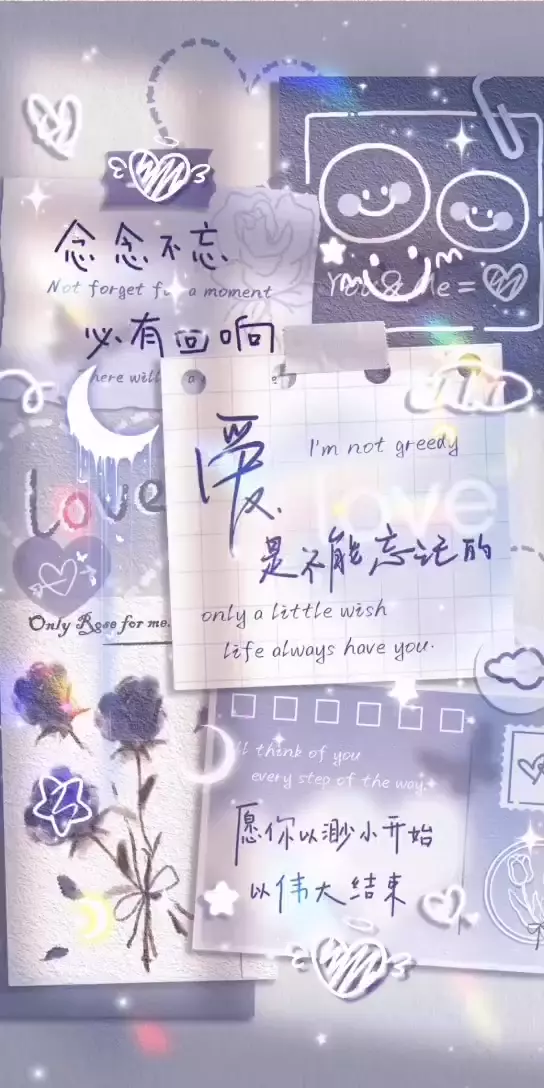 念念不忘
Not forget f a moment
必有回响
There will a
You & Me =
爱
I'm not greedy
love
love
是不能忘记的
Only Rose for me.
only a little wish
life always have you.
ll think of you
every step of the way.
愿你以渺小开始
以伟大结束